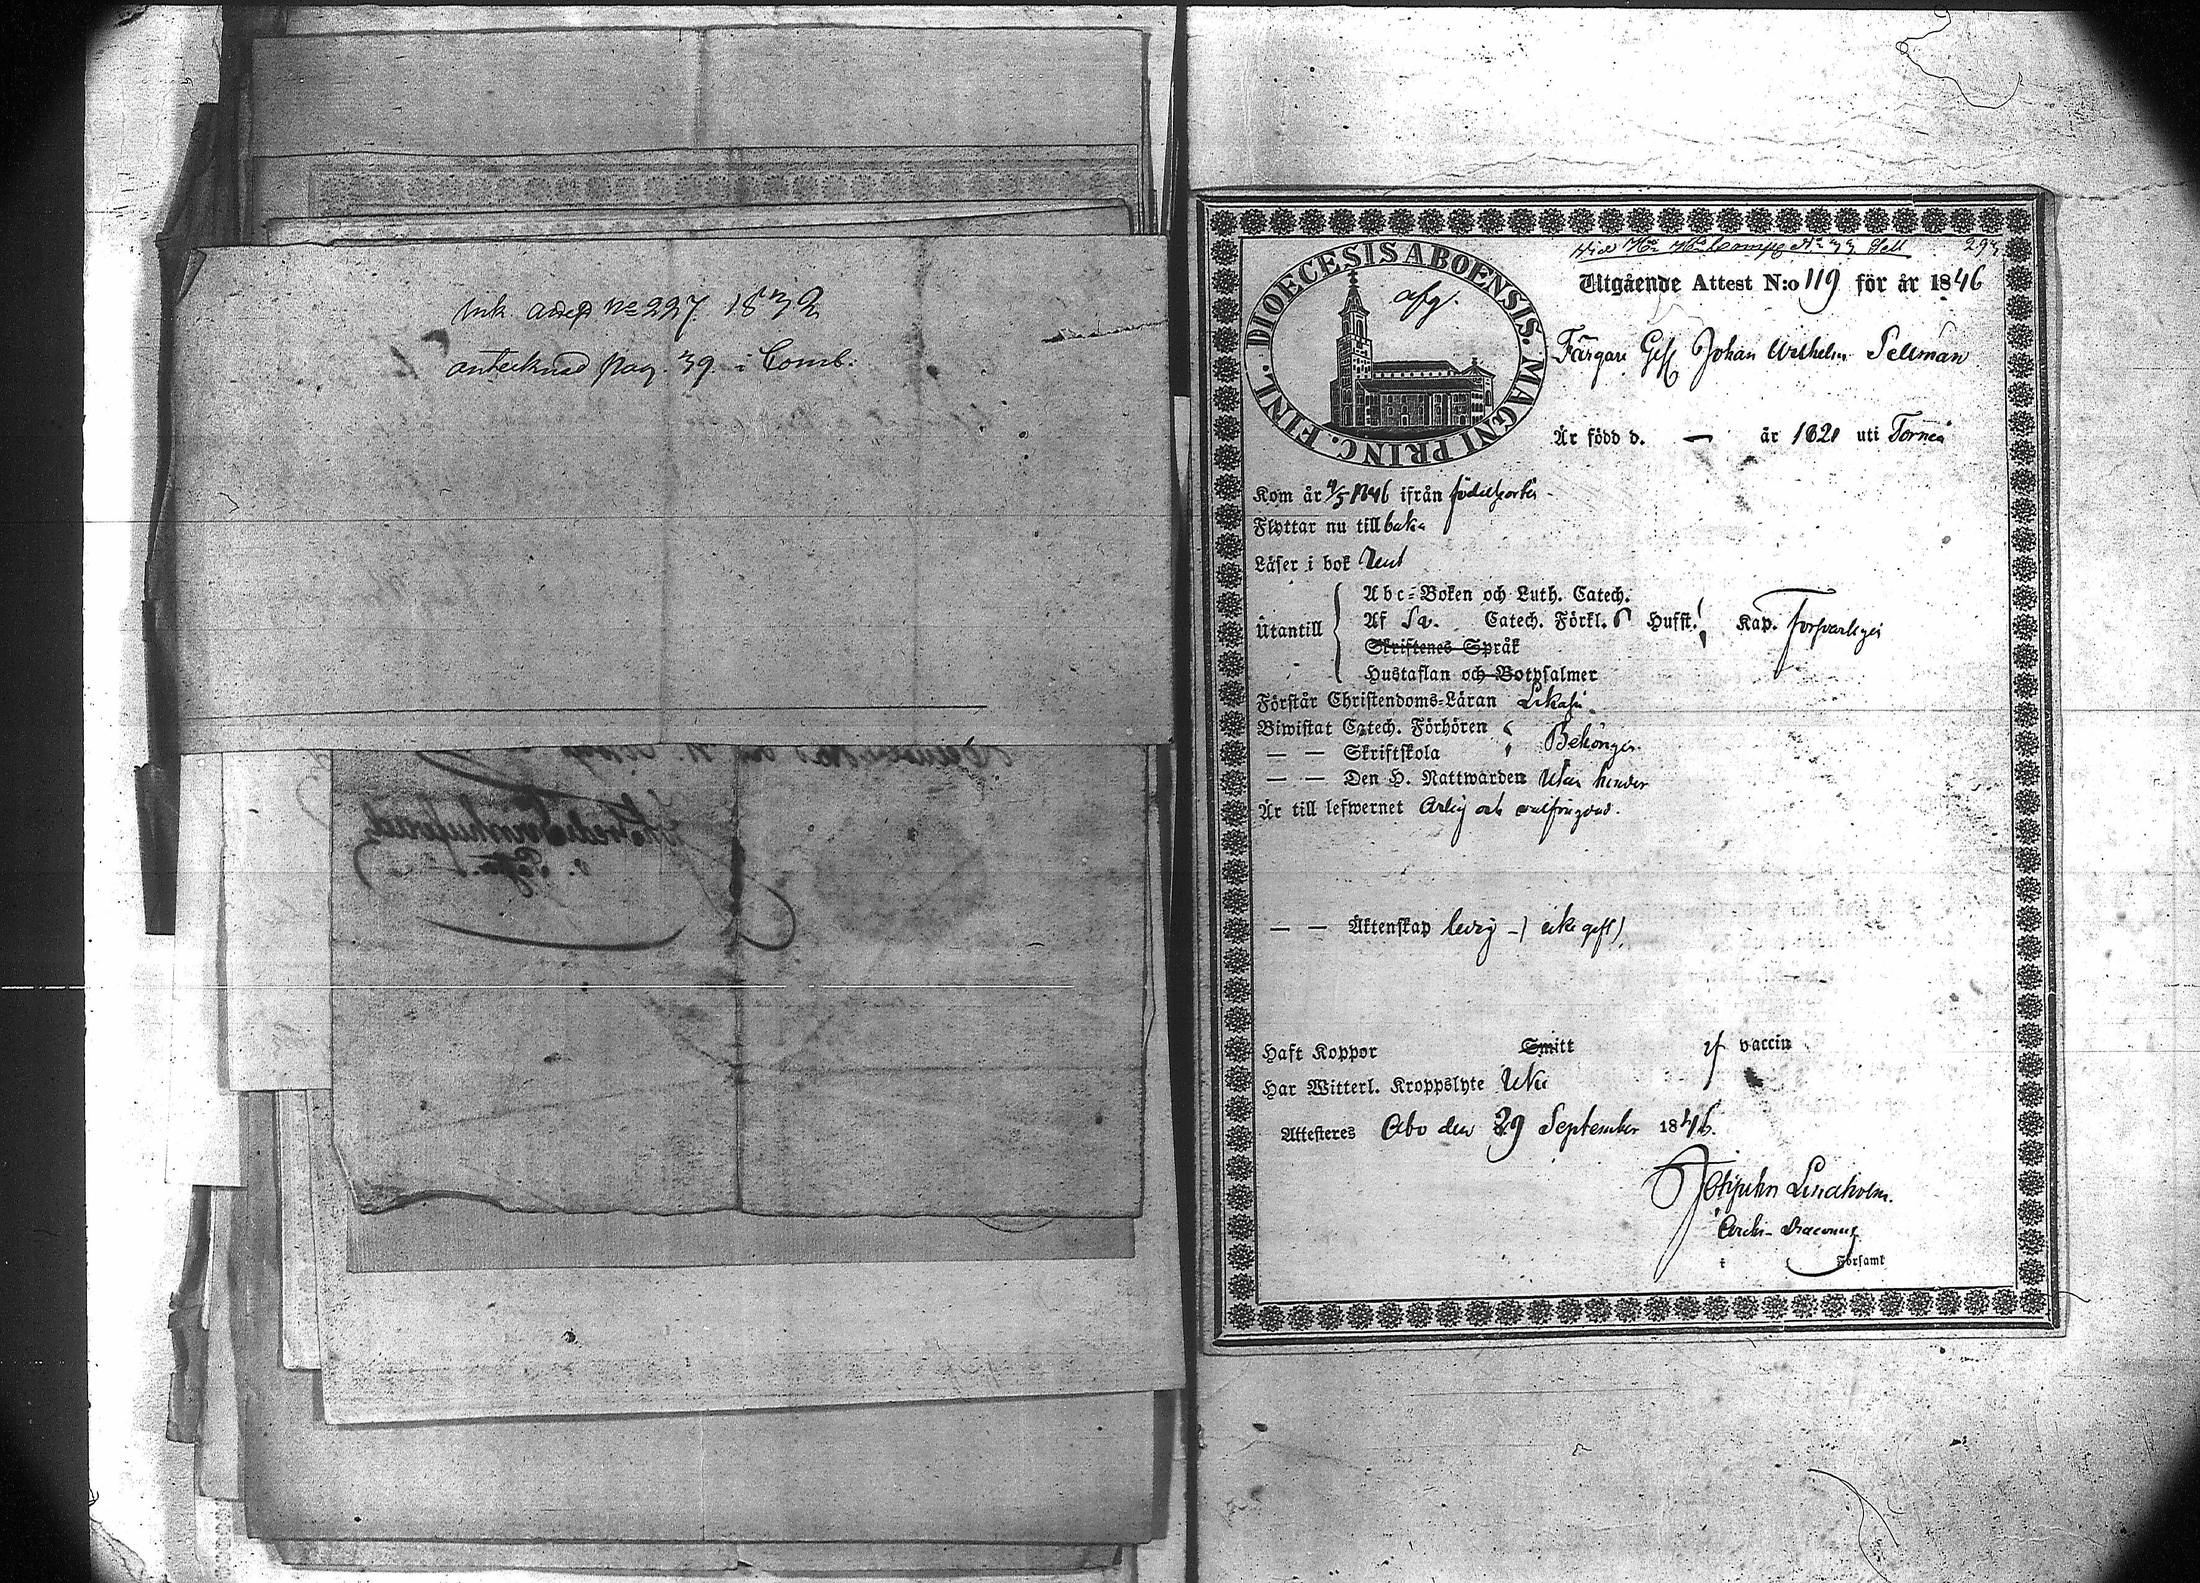 Ink. attest No 227. 1832
antecknad pag. 39. i Comb:
DIOECESIS ABOENSIS. MAGNI PRINC. FINL.
afg.
Utgående Attest N:o 119 för år 1846
Färgare Gess Johan Wilhelm Sellman
Är född d. — år 1821 uti Torneå
Kom år 9/5 1846 ifrån födelseorten
Flyttar nu till baka
Läser i bok Rent
Utantill
Abc-Boken och Luth. Catech.
Af Sv. Catech. Förkl. Hufst. Kap. Försvarligen
Skriftenes Språk
Hustaflan och Botpsalmer
Förstår Christendoms-Läran Likaså
Biwistat Catech. Förhören
— — Skriftskola Behörigen
— — Den H. Nattwarden Utan hinder
Är till lefwernet Ärlig och välfrejdad.
— — Äktenskap ledig – (icke gift)
Haft Koppor Smitt af vaccin
Har Witterl. Kroppslyte Utan
Attesteres Åbo den 29 September 1846.
Lindholm.
Archi-Diaconus
i Församl